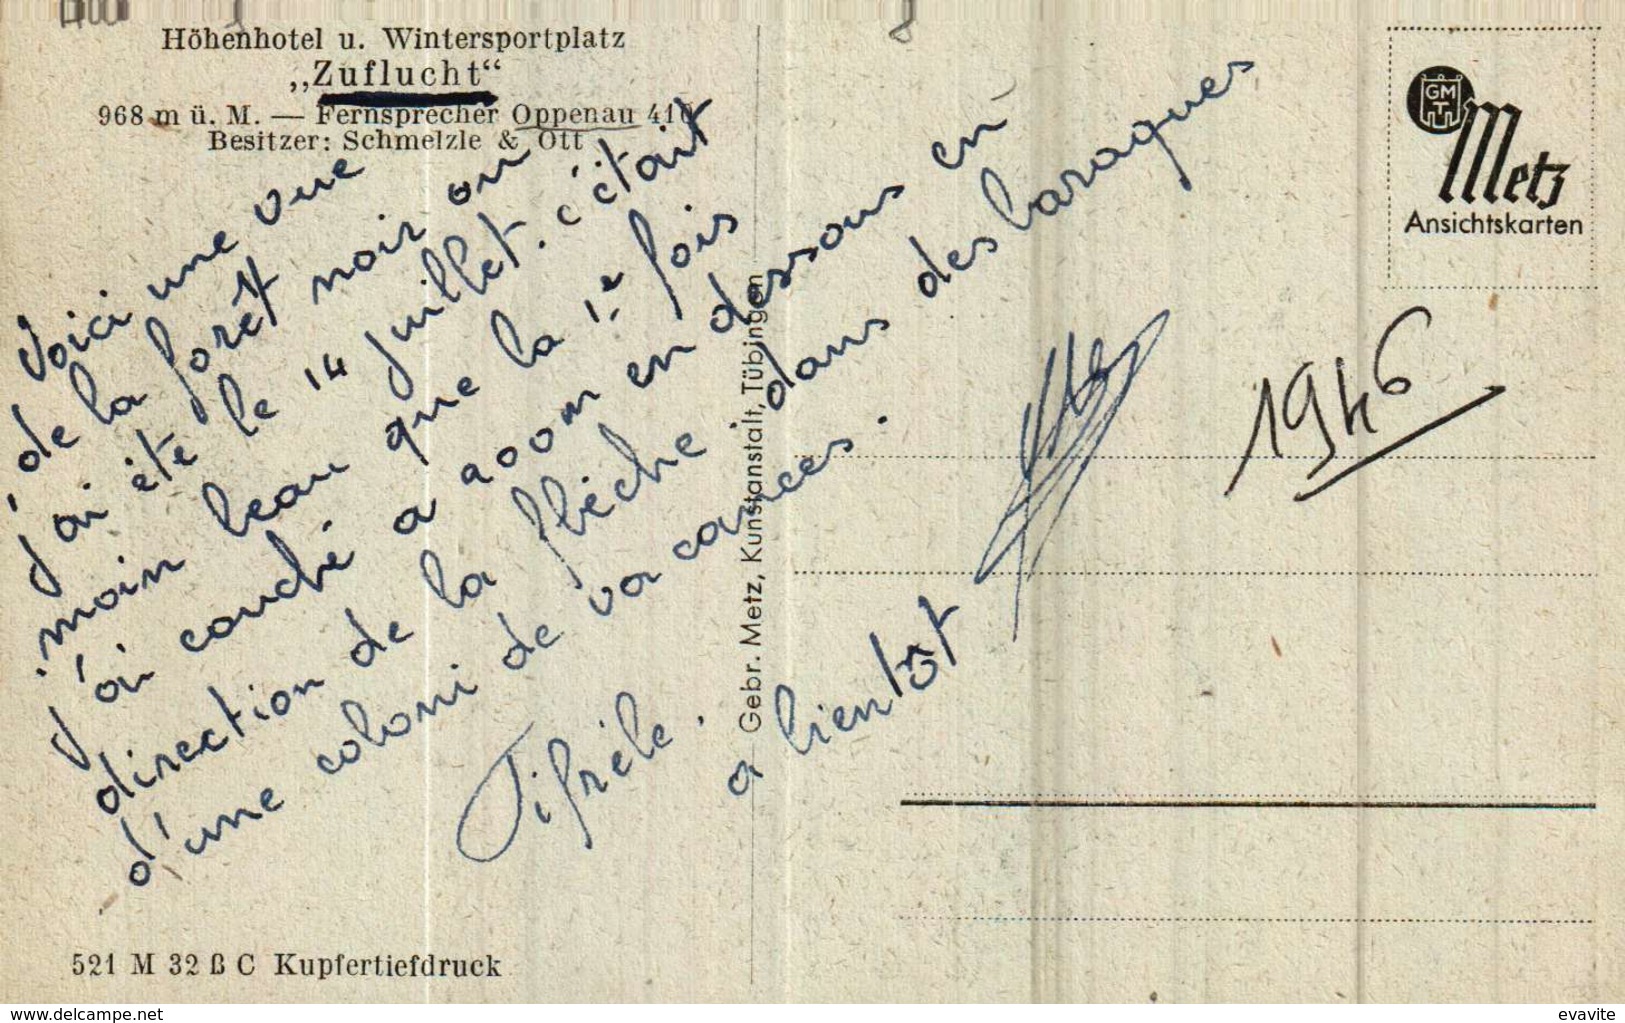 Höhenhotel u. Wintersportplatz
„Zuflucht“
968 m ü. M. — Fernsprecher Oppenau 410
Besitzer: Schmelzle & Ott
Voici une vue
de la forêt noir ou
j'ai été le 14 juillet. c'était
moin beau que la 1e fois
j'ai couché a 200m en dessous en
direction de la flèche dans des baraques
d'une coloni de vacances.
a bientôt
1946
GM
T
Metz
Ansichtskarten
Gebr. Metz, Kunstanstalt, Tübingen
521 M 32 ß C Kupfertiefdruck
www.delcampe.net
evavite